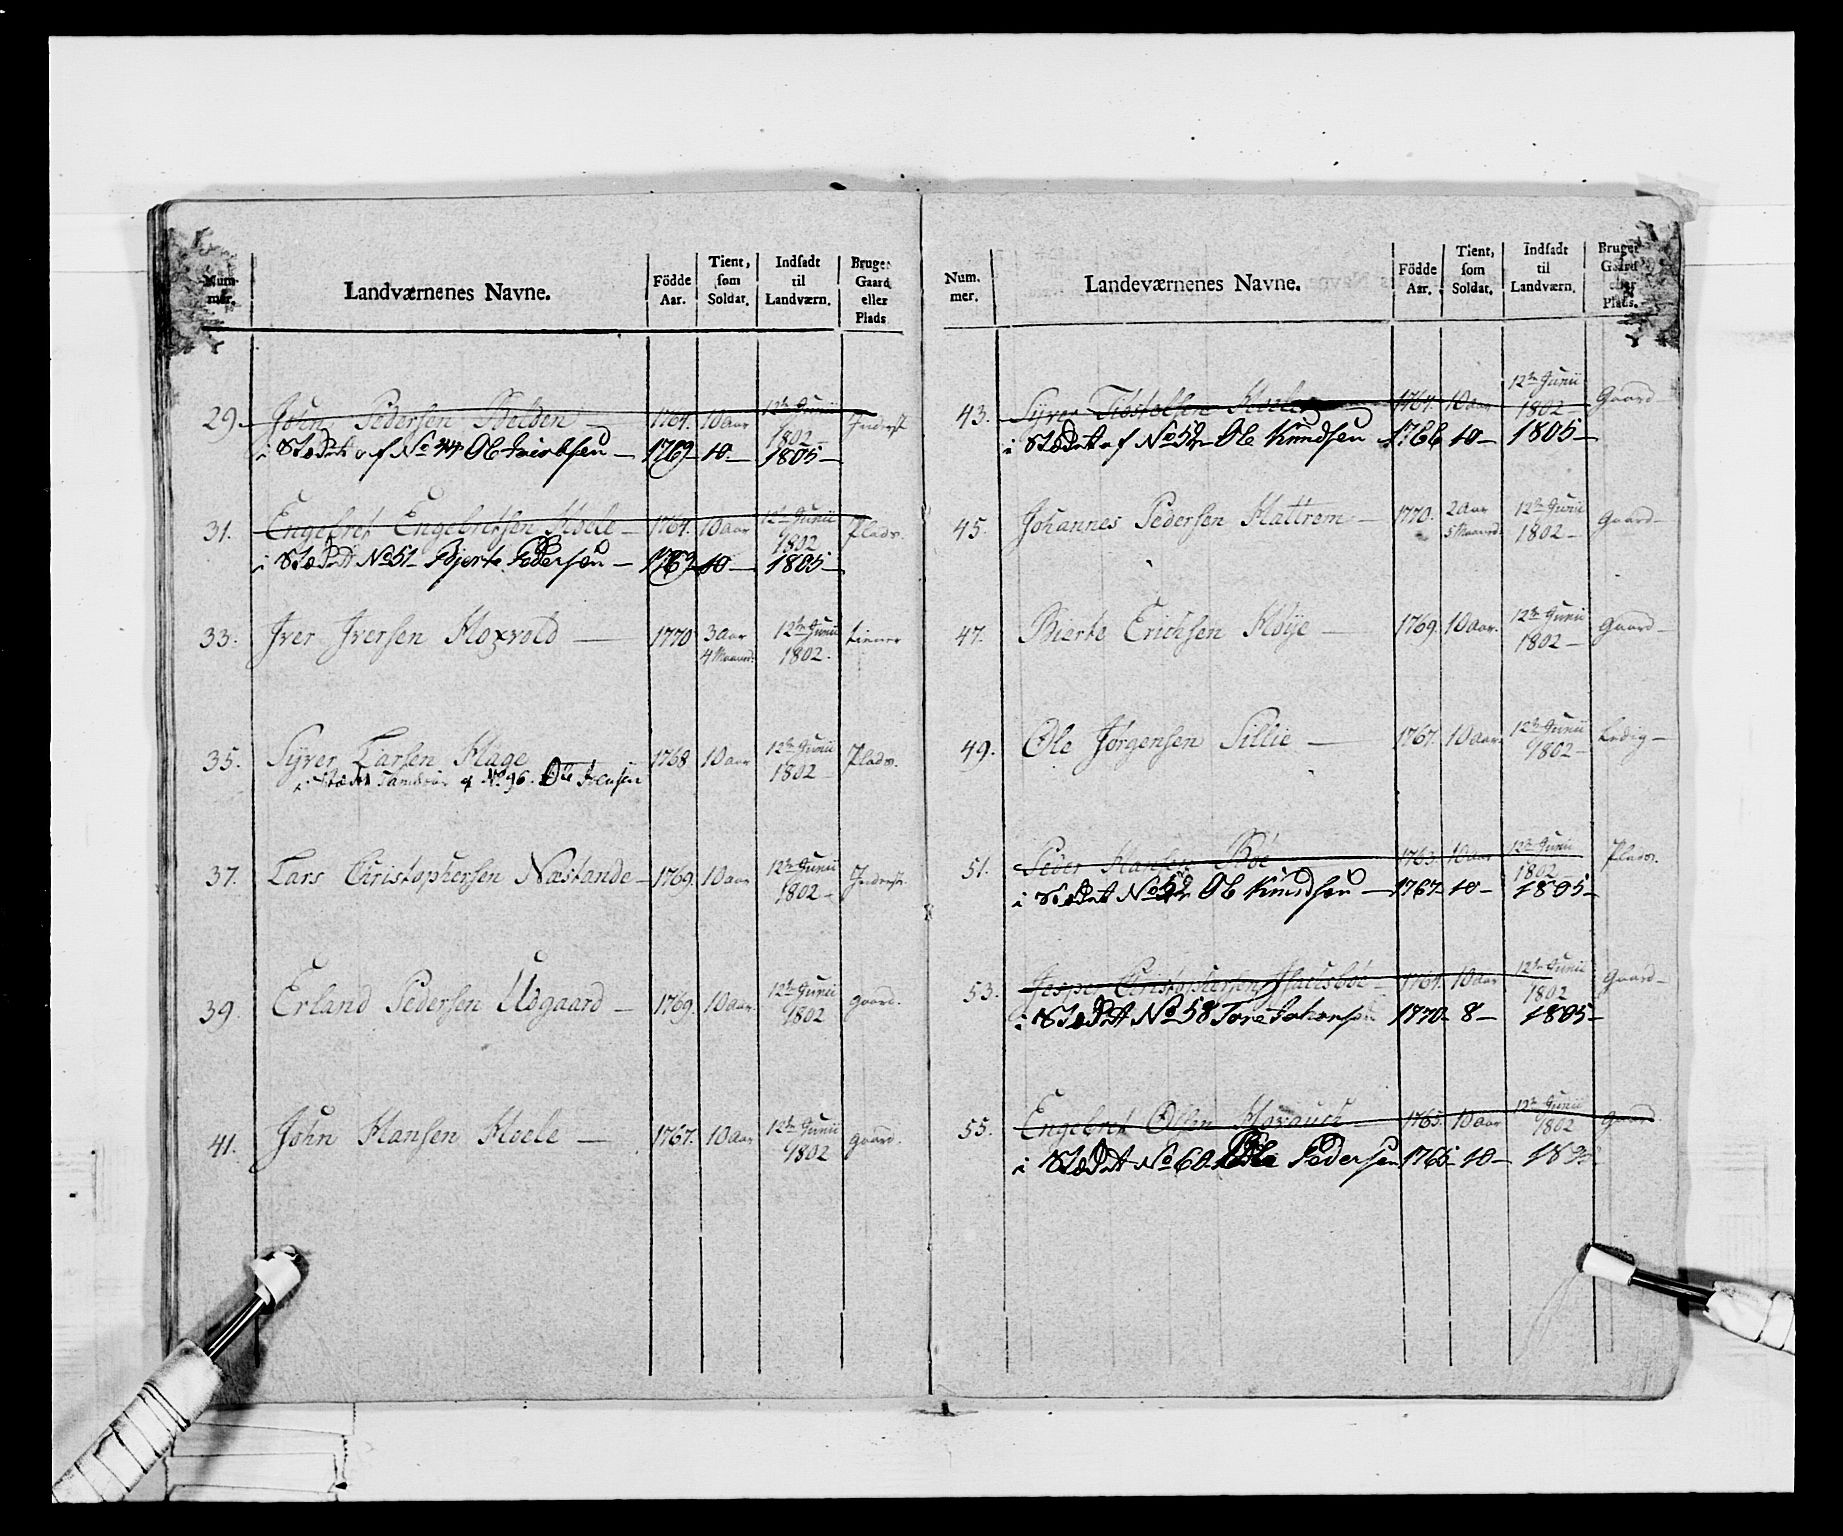 Num-
mer.
Landværnenes Navne.
Födde
Aar.
Tient,
som
Soldat.
Indsadt
til
Landværn.
Bruger
Gaard
eller
Plads
29. John Pedersen 1764. 10 Aar 12te Junii 1802 Inderst
i Stædet af No 44 Ole 1769 10 1805
31. Engebret Engebretsen Hoele 1764. 10 Aar 12te Junii 1802 Plads.
i Stædet No 51 Bjerte Pedersen 1763 10 1805
33. Iver Iversen 1770 3 Aar 4 Maaned 12te Junii 1802. tiener
35. Syver Larsen Hage 1768 10 Aar 12te Junii 1802 Plads.
i Stædet af No 96. Ole Jensen
37. Lars Christophersen Næstande 1769. 10 Aar 12te Junii 1802 Inderst.
39. Erland Pedersen Udgaard 1769. 10 Aar. 12te Junii 1802 gaard.
41. John Hansen Hoele 1767. 10 Aar 12te Junii 1802 gaard.
Num.
mer.
Landeværnenes Navne.
Födde
Aar.
Tient,
som
Soldat.
Indsadt
til
Landværn.
Bruger
Gaard
eller
Plads.
43. Syver Tostelsen 1764. 10 Aar 12te Junii 1802 Gaard
i Stædet af No 52 Ole Knudsen 1766 10 1805
45. Johannes Pedersen Hattrem 1770. 2 Aar 5 Maaned 12te Junii 1802 Gaard
47. Bierte Erichsen Høye 1769. 10 Aar. 12te Junii 1802 Gaard
49. Ole Jörgensen Sillie 1767. 10 Aar 12te Junii 1802 Ledig
51. Peder Hansen Böe 1763. 10 Aar 12te Junii 1802 Plads.
i Stædet No 52 Ole Knudsen 1767 10 1805
53. Jesper Christophersen 1764. 10 Aar 12te Junii 1802 Gaard
i Stædet No 58 Tore Johansen 1770 8 1805
55. Engebret Olsen 1765. 10 Aar 12te Junii 1802 Gaard
i Stædet No 60 Pedersen 1766 10